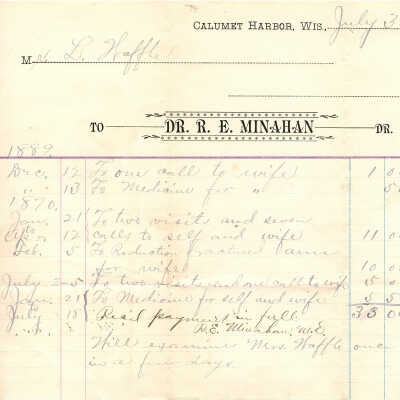 CALUMET HARBOR, WIS., July 3
M L. Haffle
TO DR. R. E. MINAHAN DR.
1889
Dec. 12 To one call to wife 1 0
" 13 To Medicine for " 5
1890
Jan. 21 To two visits and seven
12 calls to self and wife 11 0
Feb. 5 To Reduction fractured arm
for wife 10 0
July 5 To two visits and one call to wife 5 0
Jan. 21 To Medicine for self and wife 5 5
July 18 Rec'd payment in full 33 0
R.E. Minahan, M.D.
Will examine Mrs. Haffle once
in a few days.